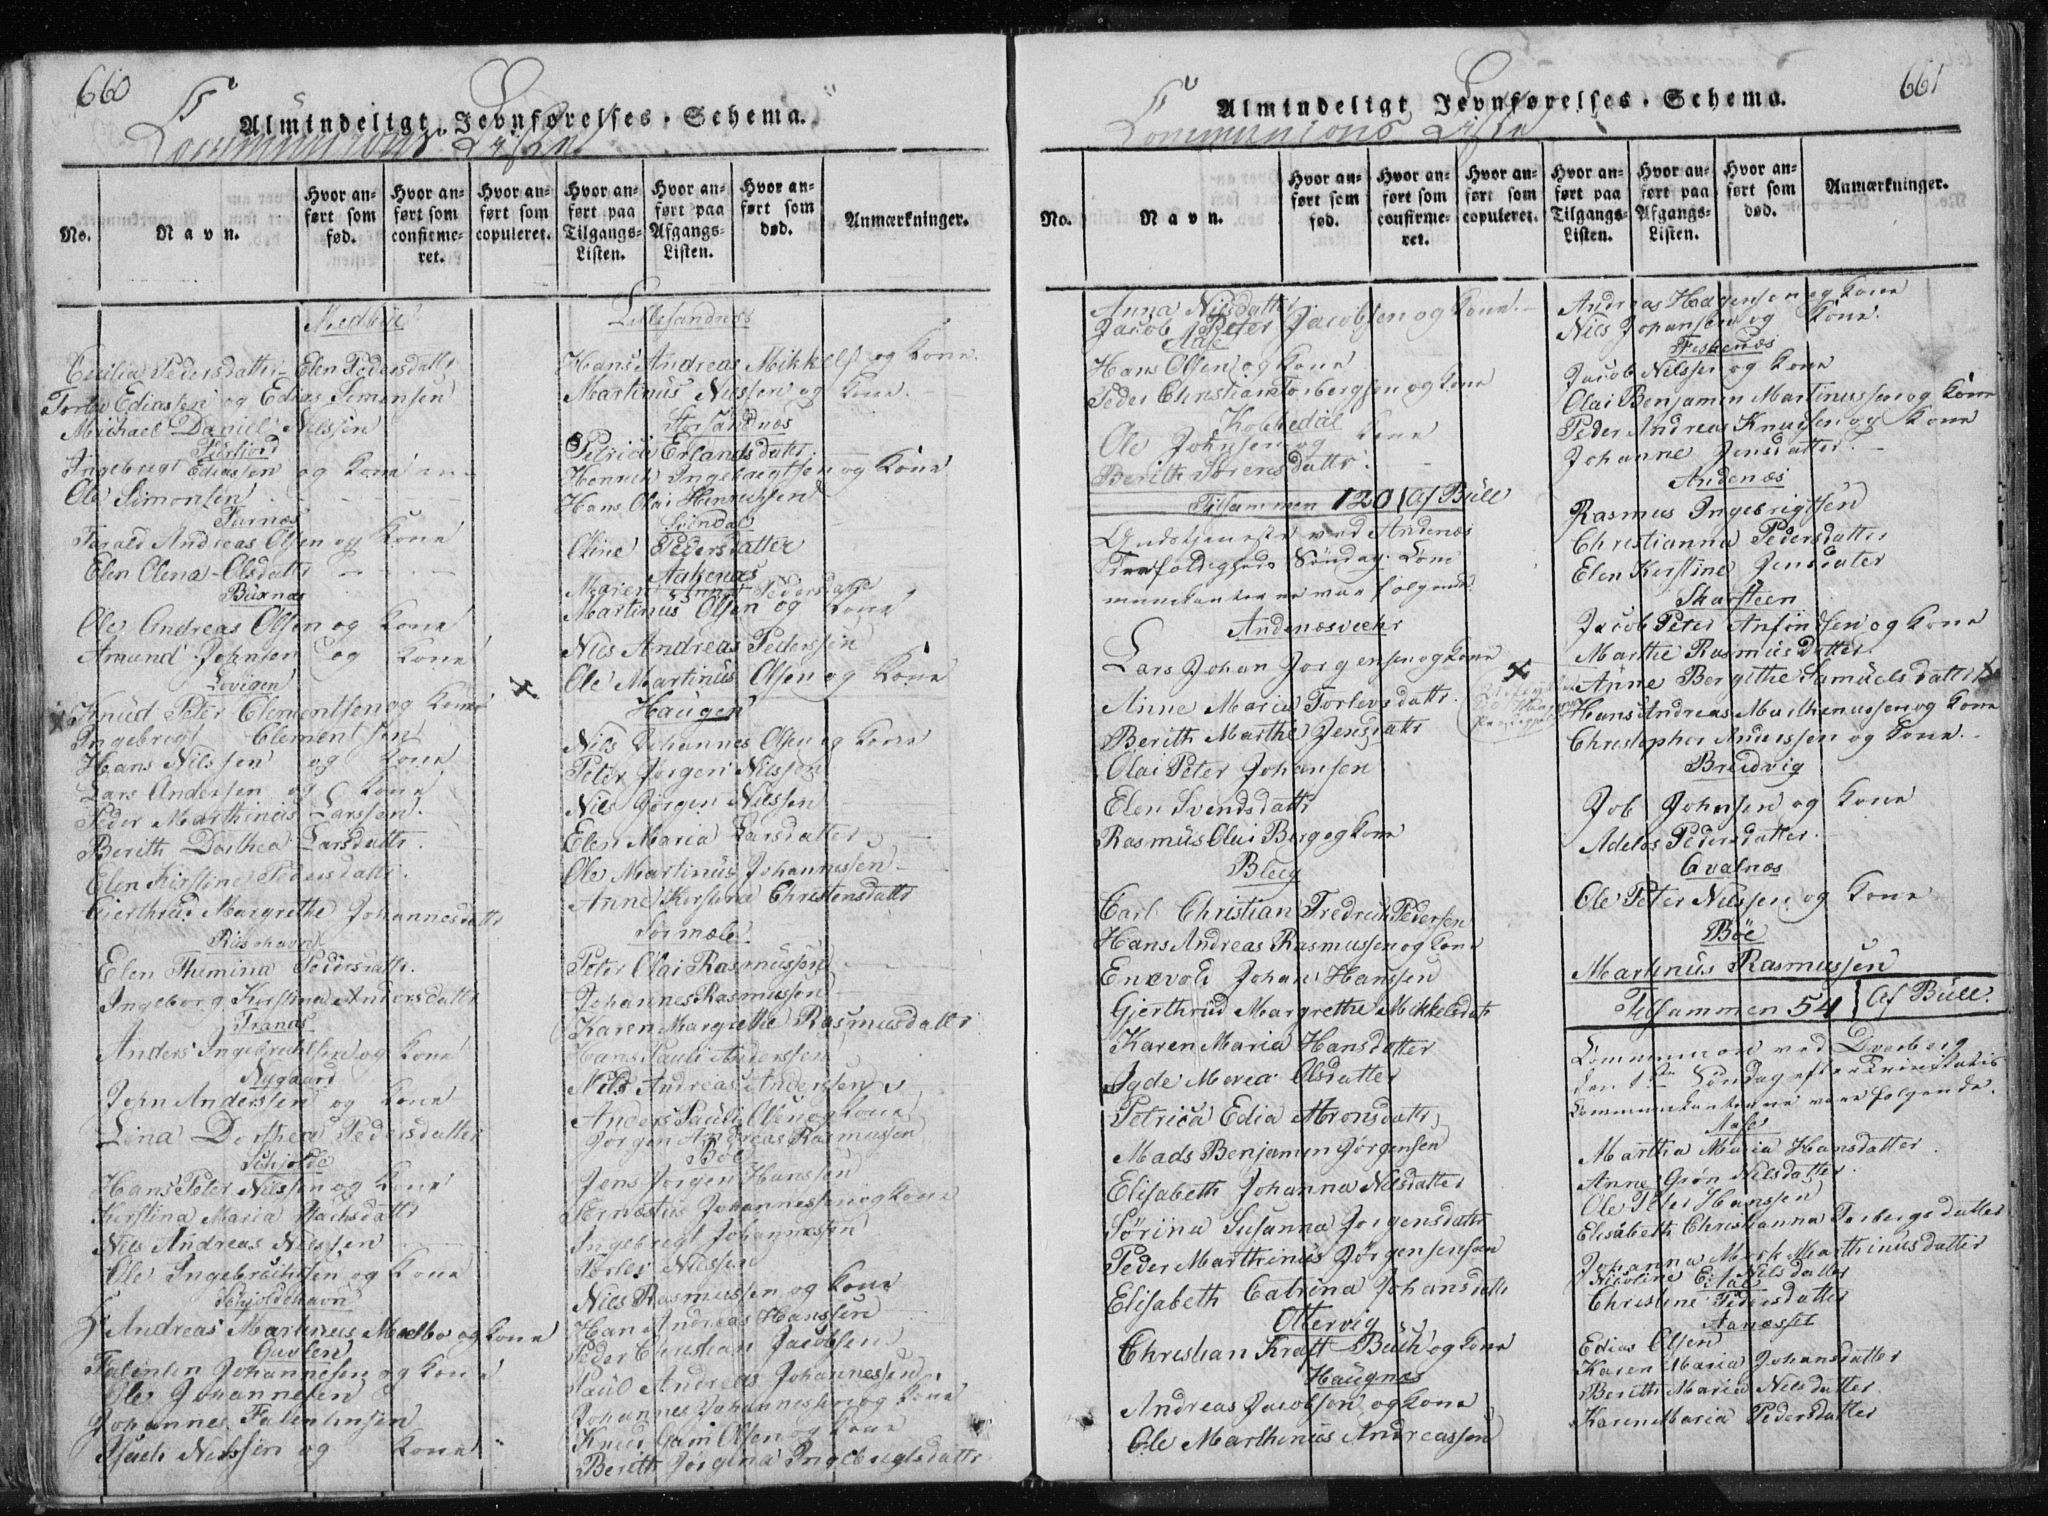 660
Almindeligt Jevnførelses-Schema.
Communions Liste
No.
Navn.
Hvor anført som fød.
Hvor anført som confirmeret.
Hvor anført som copuleret.
Hvor anført paa Tilgangs-Listen.
Hvor anført paa Afgangs-Listen.
Hvor anført som død.
Anmærkninger.
Medbye
Cecilia Pedersdatter - Elen Pedersdatter
Torlev Ediassen og Edias Simensen
Michael Daniel Nilssen
Ingebregt Ediassen og Kone
Ole Simonsen
Furnæs
Andreas Olsen og Kone
Elen Olena Olsdatter
Buxnæs
Ole Andreas Olsen og Kone
Amund Johnsen og Kone
Lovigen
Knud Peter Clementsen og Kone
Ingebrigt Clementsen
Hans Nilssen og Kone
Lars Andersen og Kone
Peder Marthinus Larssen.
Berith Dorthea Larsdatter
Elen Kirstine Pedersdatter.
Gierthrud Margrethe Johannesdatter
Risøhavn
Elen Themina Pedersdatter.
Ingeborg Kirstina Andersdatter
Tranæs
Anders Ingebrechtsen og Kone
Nygaard
John Anderssen og Kone
Lina Dorthea Pedersdatter
Schjolde
Hans Peter Nilssen og Kone
Kirstina Maria Isachsdatter
Nils Andreas Nilssen
Ole Ingebrichtsen og Kone
Schjoldehavn
Hr Andreas Martinus Medbo og Kone
Gavlen
Falentin Johannesen og Kone
Ole Johannesen
Johannes Falentinsen
Isach Nilssen og Kone
Lillesandnæs
Hans Andreas Mikkelsen og Kone.
Martinus Nilssen og Kone.
Storsandnæs
Petrica Erlandsdatter
Henrich Ingebregtsen og Kone
Hans Olai Henrichsen
Steendal
Oline Pedersdatter
Aaknæs
Maren Anna Pedersdatter
Martinus Olsen og Kone
Nils Andreas Pederssen
Ole Martinus Olsen og Kone
Haugen
Nils Johannes Olsen og Kone
Peter Jørgen Nilssen
Nils Jørgen Nilssen
Elen Maria Larsdatter
Ole Martinus Johannessen
Anne Kirstina Christensdatter
Sørmæle
Peter Olai Rasmussen
Johannes Rasmussen
Karen Margrethe Rasmusdatter
Hans Pauli Anderssen
Nils Andreas Anderssen
Anders Pauli Olsen og Kone
Jørgen Andreas Rasmussen
Böe
Jens Jørgen Hanssen
Arnæstus Johannessen og Kone
Ingebregt Johannessen
Torlev Nilssen
Nils Rasmussen og Kone
Han Andreas Hanssen
Peder Christian Jacobsen
Paul Andreas Johannessen
Johannes Johannessen og Kone
Knud Gam Olsen og Kone
Berith Jørgina Ingebrigtsdatter
661
Almindeligt Jevnførelses-Schema.
Communions Liste
No.
Navn.
Hvor anført som fød.
Hvor anført som confirmeret.
Hvor anført som copuleret.
Hvor anført paa Tilgangs-Listen.
Hvor anført paa Afgangs-Listen.
Hvor anført som død.
Anmærkninger.
Anna Nilsdatter
Jacob Peter Jacobsen og Kone.
Aase
Hans Olsen og Kone
Peder Christian Torbergsen og Kone
Kobbedal
Ole Johnsen og Kone
Berith Sørensdatter.
Tilsammen 120 / Af Bull
Gudstjeneste ved Andenæs
Trefoldigheds Söndag. Com
munikanterne var følgende.
Andenæsveehr
Lars Johan Jørgensen og Kone
Anne Maria Torlevsdatter.
Berith Marthe Jensdatter
Olai Peter Johansen
Elen Svendsdatter
Rasmus Olai Berg og Kone
Bleeg
Carl Christian Fredrich Pedersen
Hans Andreas Rasmussen og Kone
Enevold Johan Hanssen
Gjerthrud Margrethe Mikkelsdatter
Karen Maria Hansdatter
Maria Olsdatter
Petrica Edia Aronsdatter
Mads Benjamin Jørgensen
Elisabeth Johanna Nilsdatter
Sørina Susanna Jørgensdatter
Peder Marthinus Jørgensen
Elisabeth Catrina Johansdatter
Ottervig
Christian Kraft Buch og Kone
Haugnæs
Andreas Jacobsen og Kone
Ole Marthinus Andreassen
Andreas Hagensen og Kone
Nils Johansen og Kone.
Fiskenæs
Jacob Nilssen og Kone
Olai Benjamin Martinussen og Kone
Peder Andreas Knudsen og Kone
Johanne Jensdatter.
Andenæs
Rasmus Ingebrigtsen
Christianna Pedersdatter
Elen Kirstine Jensdatter
Skarsteen
Jacob Peter Anfindsen og Kone
Marthe Rasmusdatter.
Anne Bergithe Samuelsdatter
Hans Andreas Marthenussen og Kone
Christopher Anderssen og Kone.
Breidvig
Job Johnsen og Kone
Adelos Pedersdatter.
Qvalnæs
Ole Peter Nilssen og Kone
Böe
Martinus Rasmussen
Tilsammen 54 / Af Bull.
Communion ved Dverberg
den 1ste Söndag efter Trinitatis
Communikanterne vare følgende.
Aase
Martha Maria Hansdatter.
Anne Grøn Nilsdatter.
Ole Peter Hanssen
Elisabeth Christianna Torbergsdatter
Johanna Mork Marthinusdatter
Nicoline Nilsdatter
Christine Pedersdatter
Aanæsset
Edias Olsen
Karen Maria Johansdatter
Berith Maria Nilsdatter
Karen Maria Pedersdatter